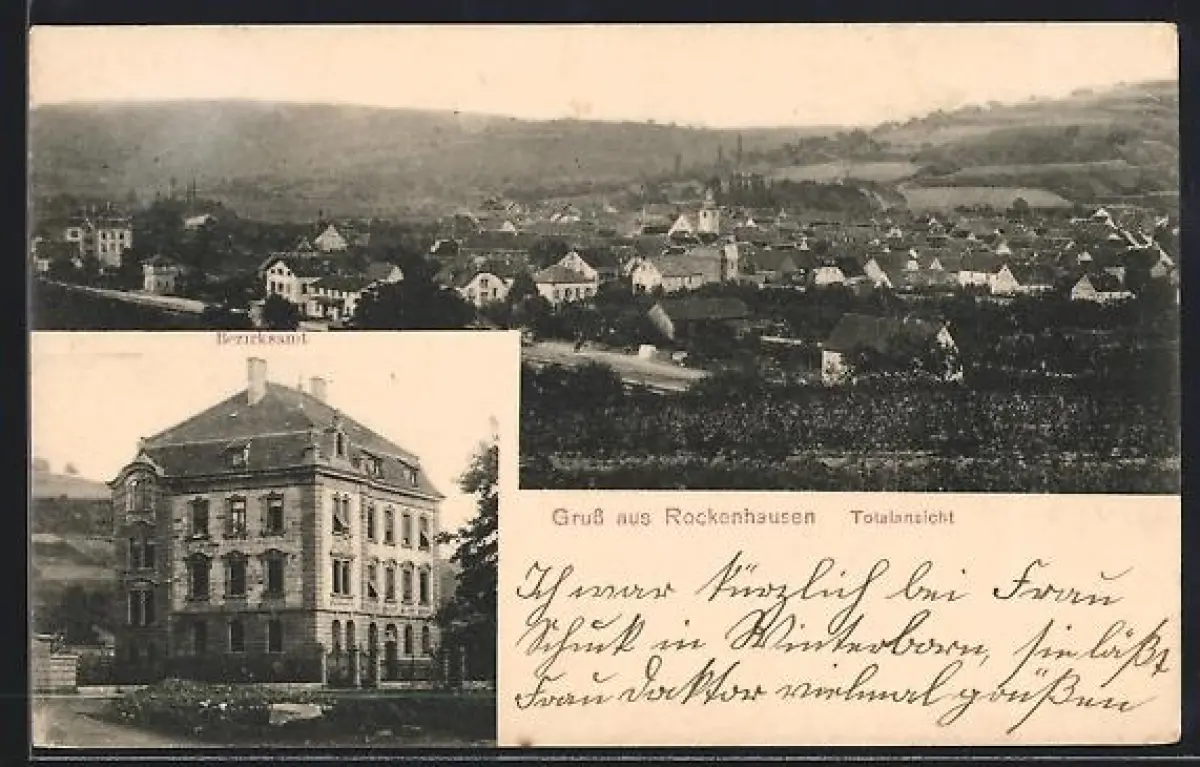 Bezirksamt
Gruß aus Rockenhausen Totalansicht
Ich war kürzlich bei Frau
Schuck in Winterborn, sie läßt
Frau Doktor vielmal grüßen